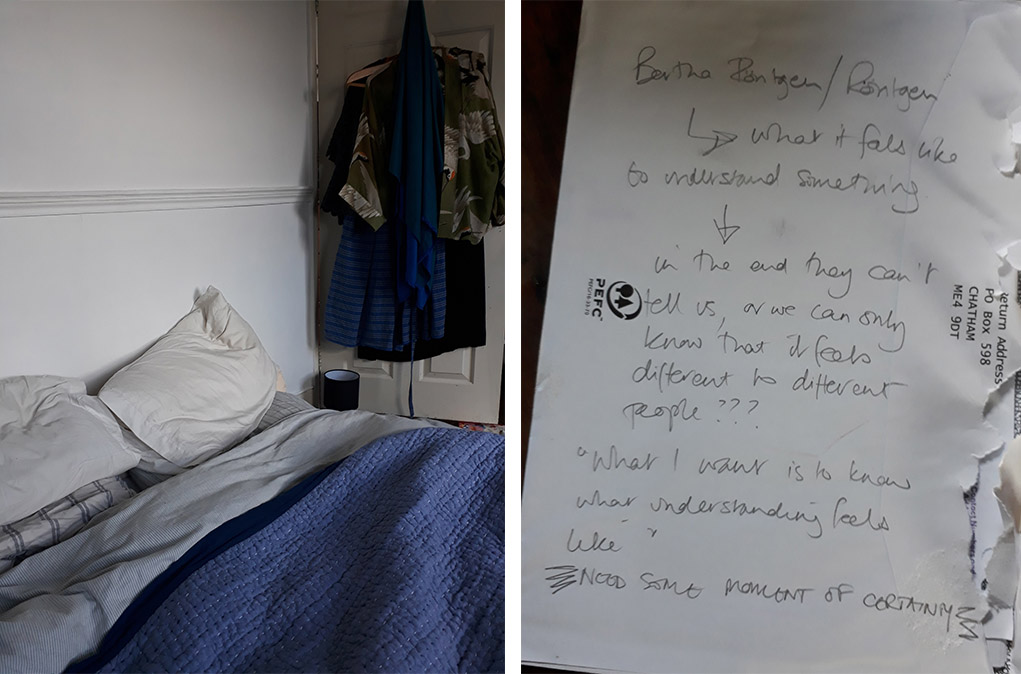 Bertha Röntgen/Röntgen
↳ what it feels like
to understand something
↓
in the end they can't
tell us, or we can only
know that it feels
different to different
people???
"What I want is to know
what understanding feels
like"
NEED SOME MOMENT OF CERTAINTY
PEFC™
eturn Address
PO BOX 598
CHATHAM
ME4 9DT